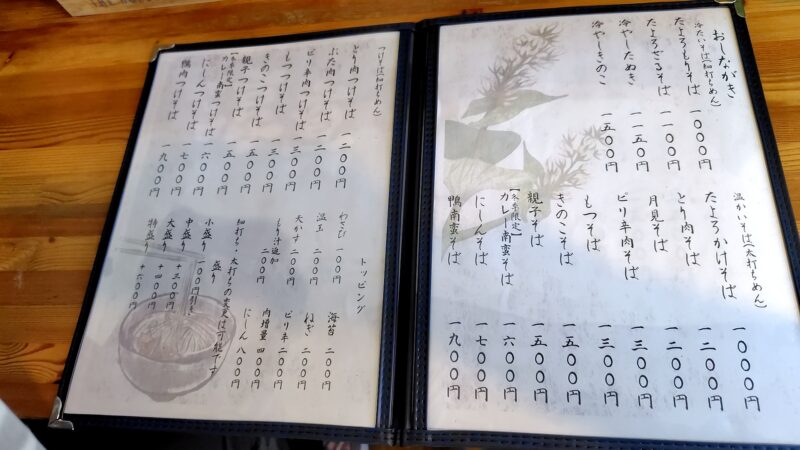 おしながき
冷たいそば(細打ちめん)
たよろもりそば 一〇〇〇円
たよろざるそば 一一〇〇円
冷やしたぬき 一一五〇円
冷やしきのこ 一五〇〇円
温かいそば(太打ちめん)
たよろかけそば 一〇〇〇円
とり肉そば 一二〇〇円
月見そば 一二〇〇円
ピリ辛肉そば 一三〇〇円
もつそば 一三〇〇円
きのこそば 一五〇〇円
親子そば 一五〇〇円
【冬季限定】
カレー南蛮そば 一六〇〇円
にしんそば 一七〇〇円
鴨南蛮そば 一九〇〇円
つけそば(細打ちめん)
とり肉つけそば 一二〇〇円
ぶた肉つけそば 一二〇〇円
ピリ辛肉つけそば 一三〇〇円
もつつけそば 一三〇〇円
きのこつけそば 一五〇〇円
親子つけそば 一五〇〇円
【冬季限定】
カレー南蛮つけそば 一六〇〇円
にしんつけそば 一七〇〇円
鴨肉つけそば 一九〇〇円
トッピング
わさび 一〇〇円
温玉 二〇〇円
天かす 二〇〇円
もり汁追加 二〇〇円
海苔 二〇〇円
ねぎ 二〇〇円
ピリ辛 二〇〇円
肉増量 四〇〇円
にしん 八〇〇円
細打ち・太打ちの変更は可能です
盛り
小盛り 一〇〇円引き
中盛り +三〇〇円
大盛り +四〇〇円
特盛り +六〇〇円